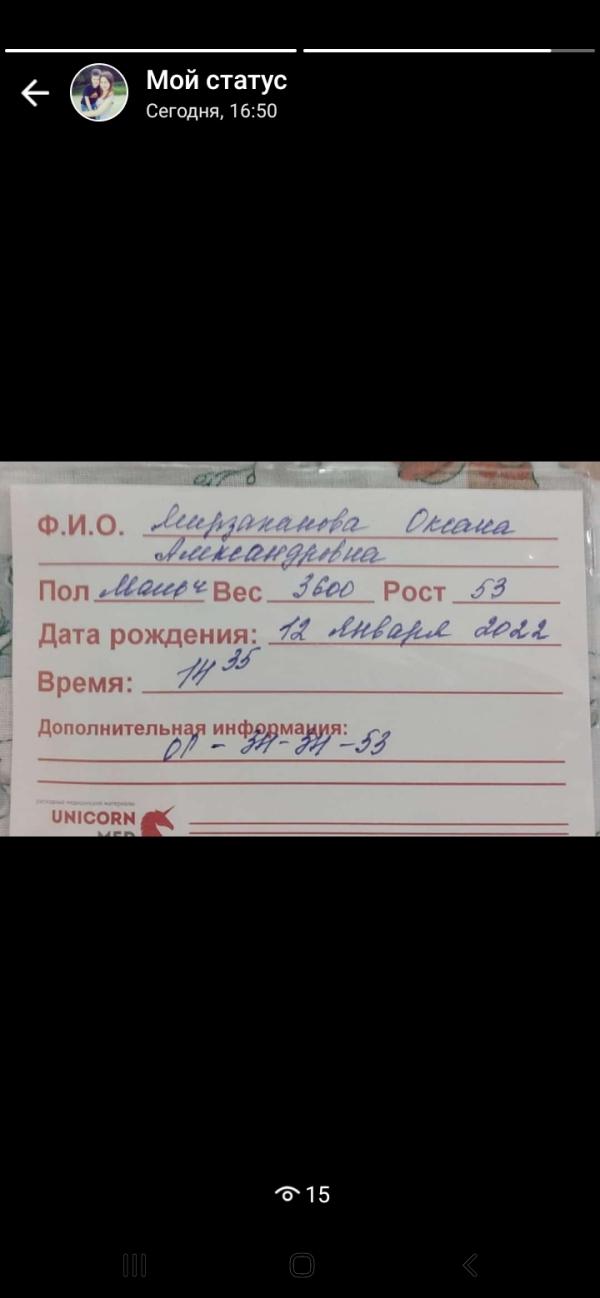 Мой статус
Сегодня, 16:50
Ф.И.О. Мирзаханова Оксана
Александровна
Пол Мальч Вес 3600 Рост 53
Дата рождения: 12 января 2022
Время: 14 35
Дополнительная информация:
ОГ - 34-34-53
расходные медицинские материалы
UNICORN
MED
15